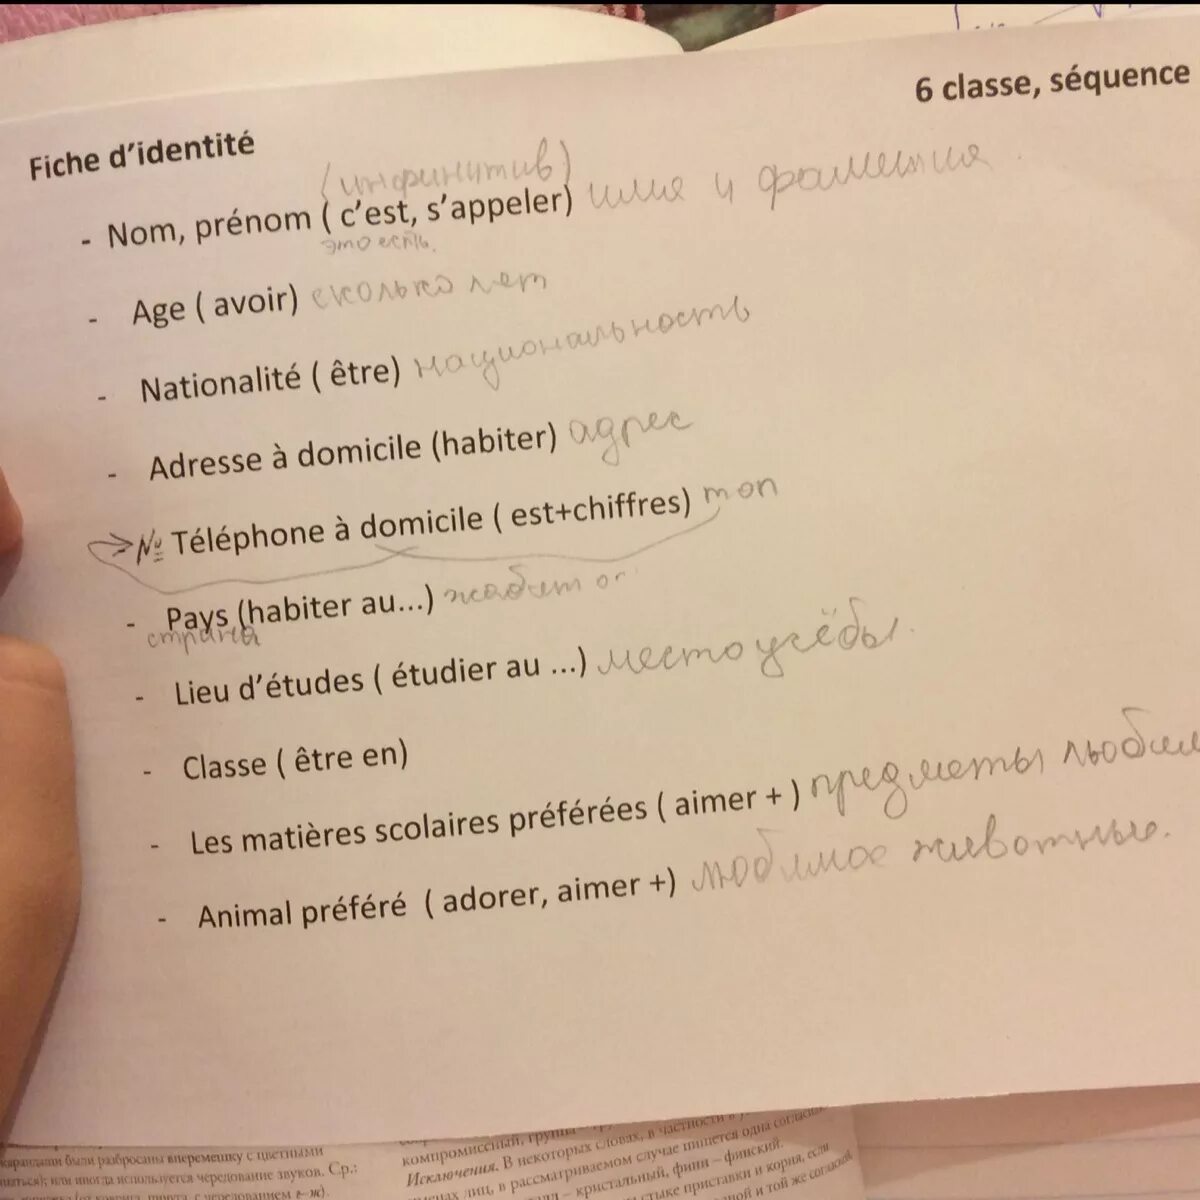 6 classe, séquence
Fiche d'identité
(инфинитив)
- Nom, prénom ( c'est, s'appeler) имя и фамилия
это есть.
- Age ( avoir) сколько лет
- Nationalité ( être) национальность
- Adresse à domicile (habiter) адрес
№ Téléphone à domicile ( est+chiffres) mon
- Pays (habiter au...)
страна
- Lieu d'études ( étudier au ...) место учёбы.
- Classe ( être en)
- Les matières scolaires préférées ( aimer + ) предметы
- Animal préféré ( adorer, aimer +) любимое животные.
карандаши были разбросаны вперемешку с цветными
или иногда используется чередование звуков. Ср.:
компромиссный, группа –
Исключения. В некоторых словах, в частности в
лиц, в рассматриваемом случае пишется одна
– кристальный, финн – финский.
стыке приставки и корня, если
и той же